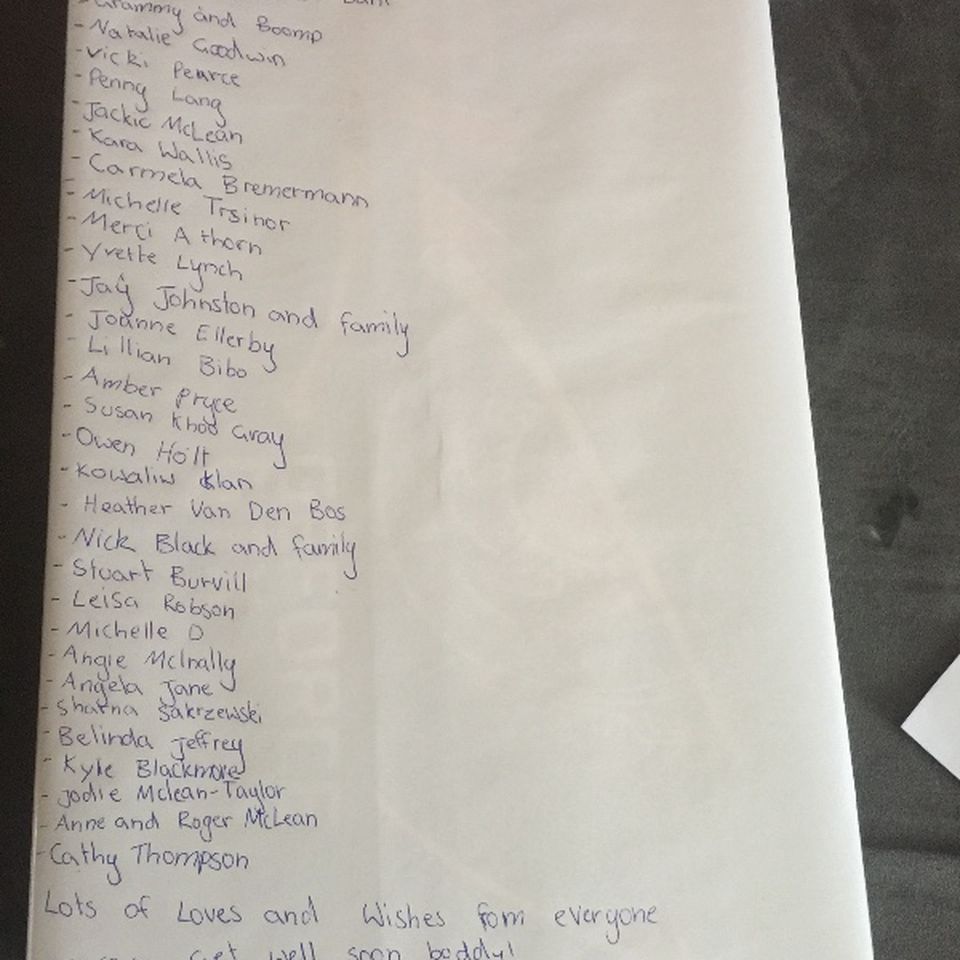 - Grammy and Boomp
- Natalie Goodwin
- Vicki Pearce
- Penny Lang
- Jackie McLean
- Kara Wallis
- Carmela Bremermann
- Michelle Trsinor
- Merci Athorn
- Yvette Lynch
- Jay Johnston and family
- Joanne Ellerby
- Lillian Bibo
- Amber Pryce
- Susan Khoo Gray
- Owen Holt
- Kowaliw Klan
- Heather Van Den Bos
- Nick Black and family
- Stuart Burvill
- Leisa Robson
- Michelle D
- Angie McInally
- Angela Jane
- Sharna Sakrzewski
- Belinda Jeffrey
- Kyle Blackmore
- Jodie Mclean-Taylor
- Anne and Roger McLean
- Cathy Thompson
Lots of Loves and Wishes fom everyone
Get well soon baddy!